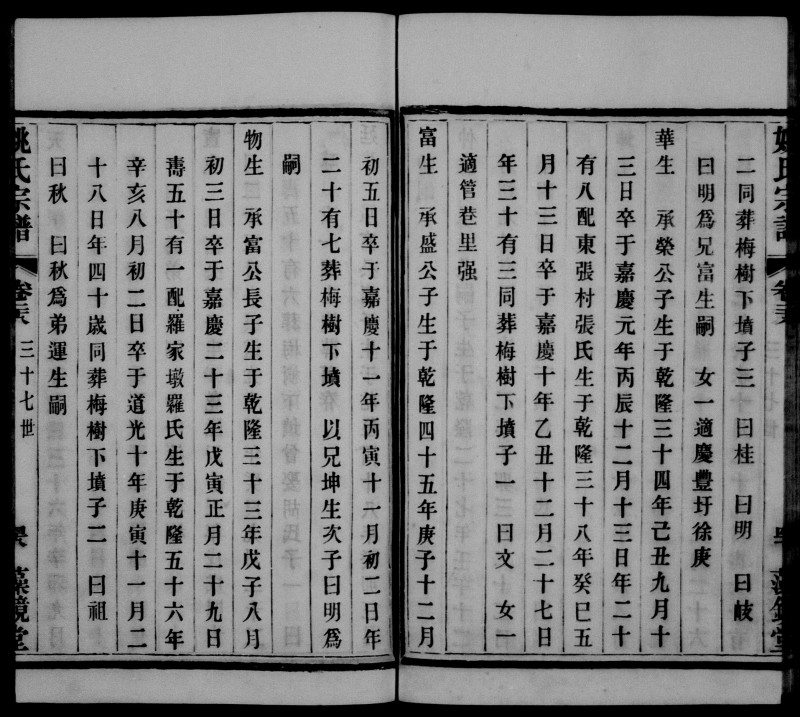 二同葬梅樹下墳子三 曰桂 曰明 曰岐
曰明爲兄富生嗣 女一適慶豐圩徐庚
華生 承榮公子生于乾隆三十四年己丑九月十
三日卒于嘉慶元年丙辰十二月十三日年二十
有八配東張村張氏生于乾隆三十八年癸巳五
月十三日卒于嘉慶十年乙丑十二月二十七日
年三十有三同葬梅樹下墳子一 曰文 女一
適管巷里强
富生 承盛公子生于乾隆四十五年庚子十二月
初五日卒于嘉慶十一年丙寅十一月初二日年
二十有七葬梅樹下墳 以兄坤生次子曰明爲
嗣
物生 承富公長子生于乾隆三十三年戊子八月
初三日卒于嘉慶二十三年戊寅正月二十九日
壽五十有一配羅家墩羅氏生于乾隆五十六年
辛亥八月初二日卒于道光十年庚寅十一月二
十八日年四十歲同葬梅樹下墳子二 曰祖
曰秋 曰秋爲弟運生嗣
姚氏宗譜 卷 三十七世 藻鏡堂